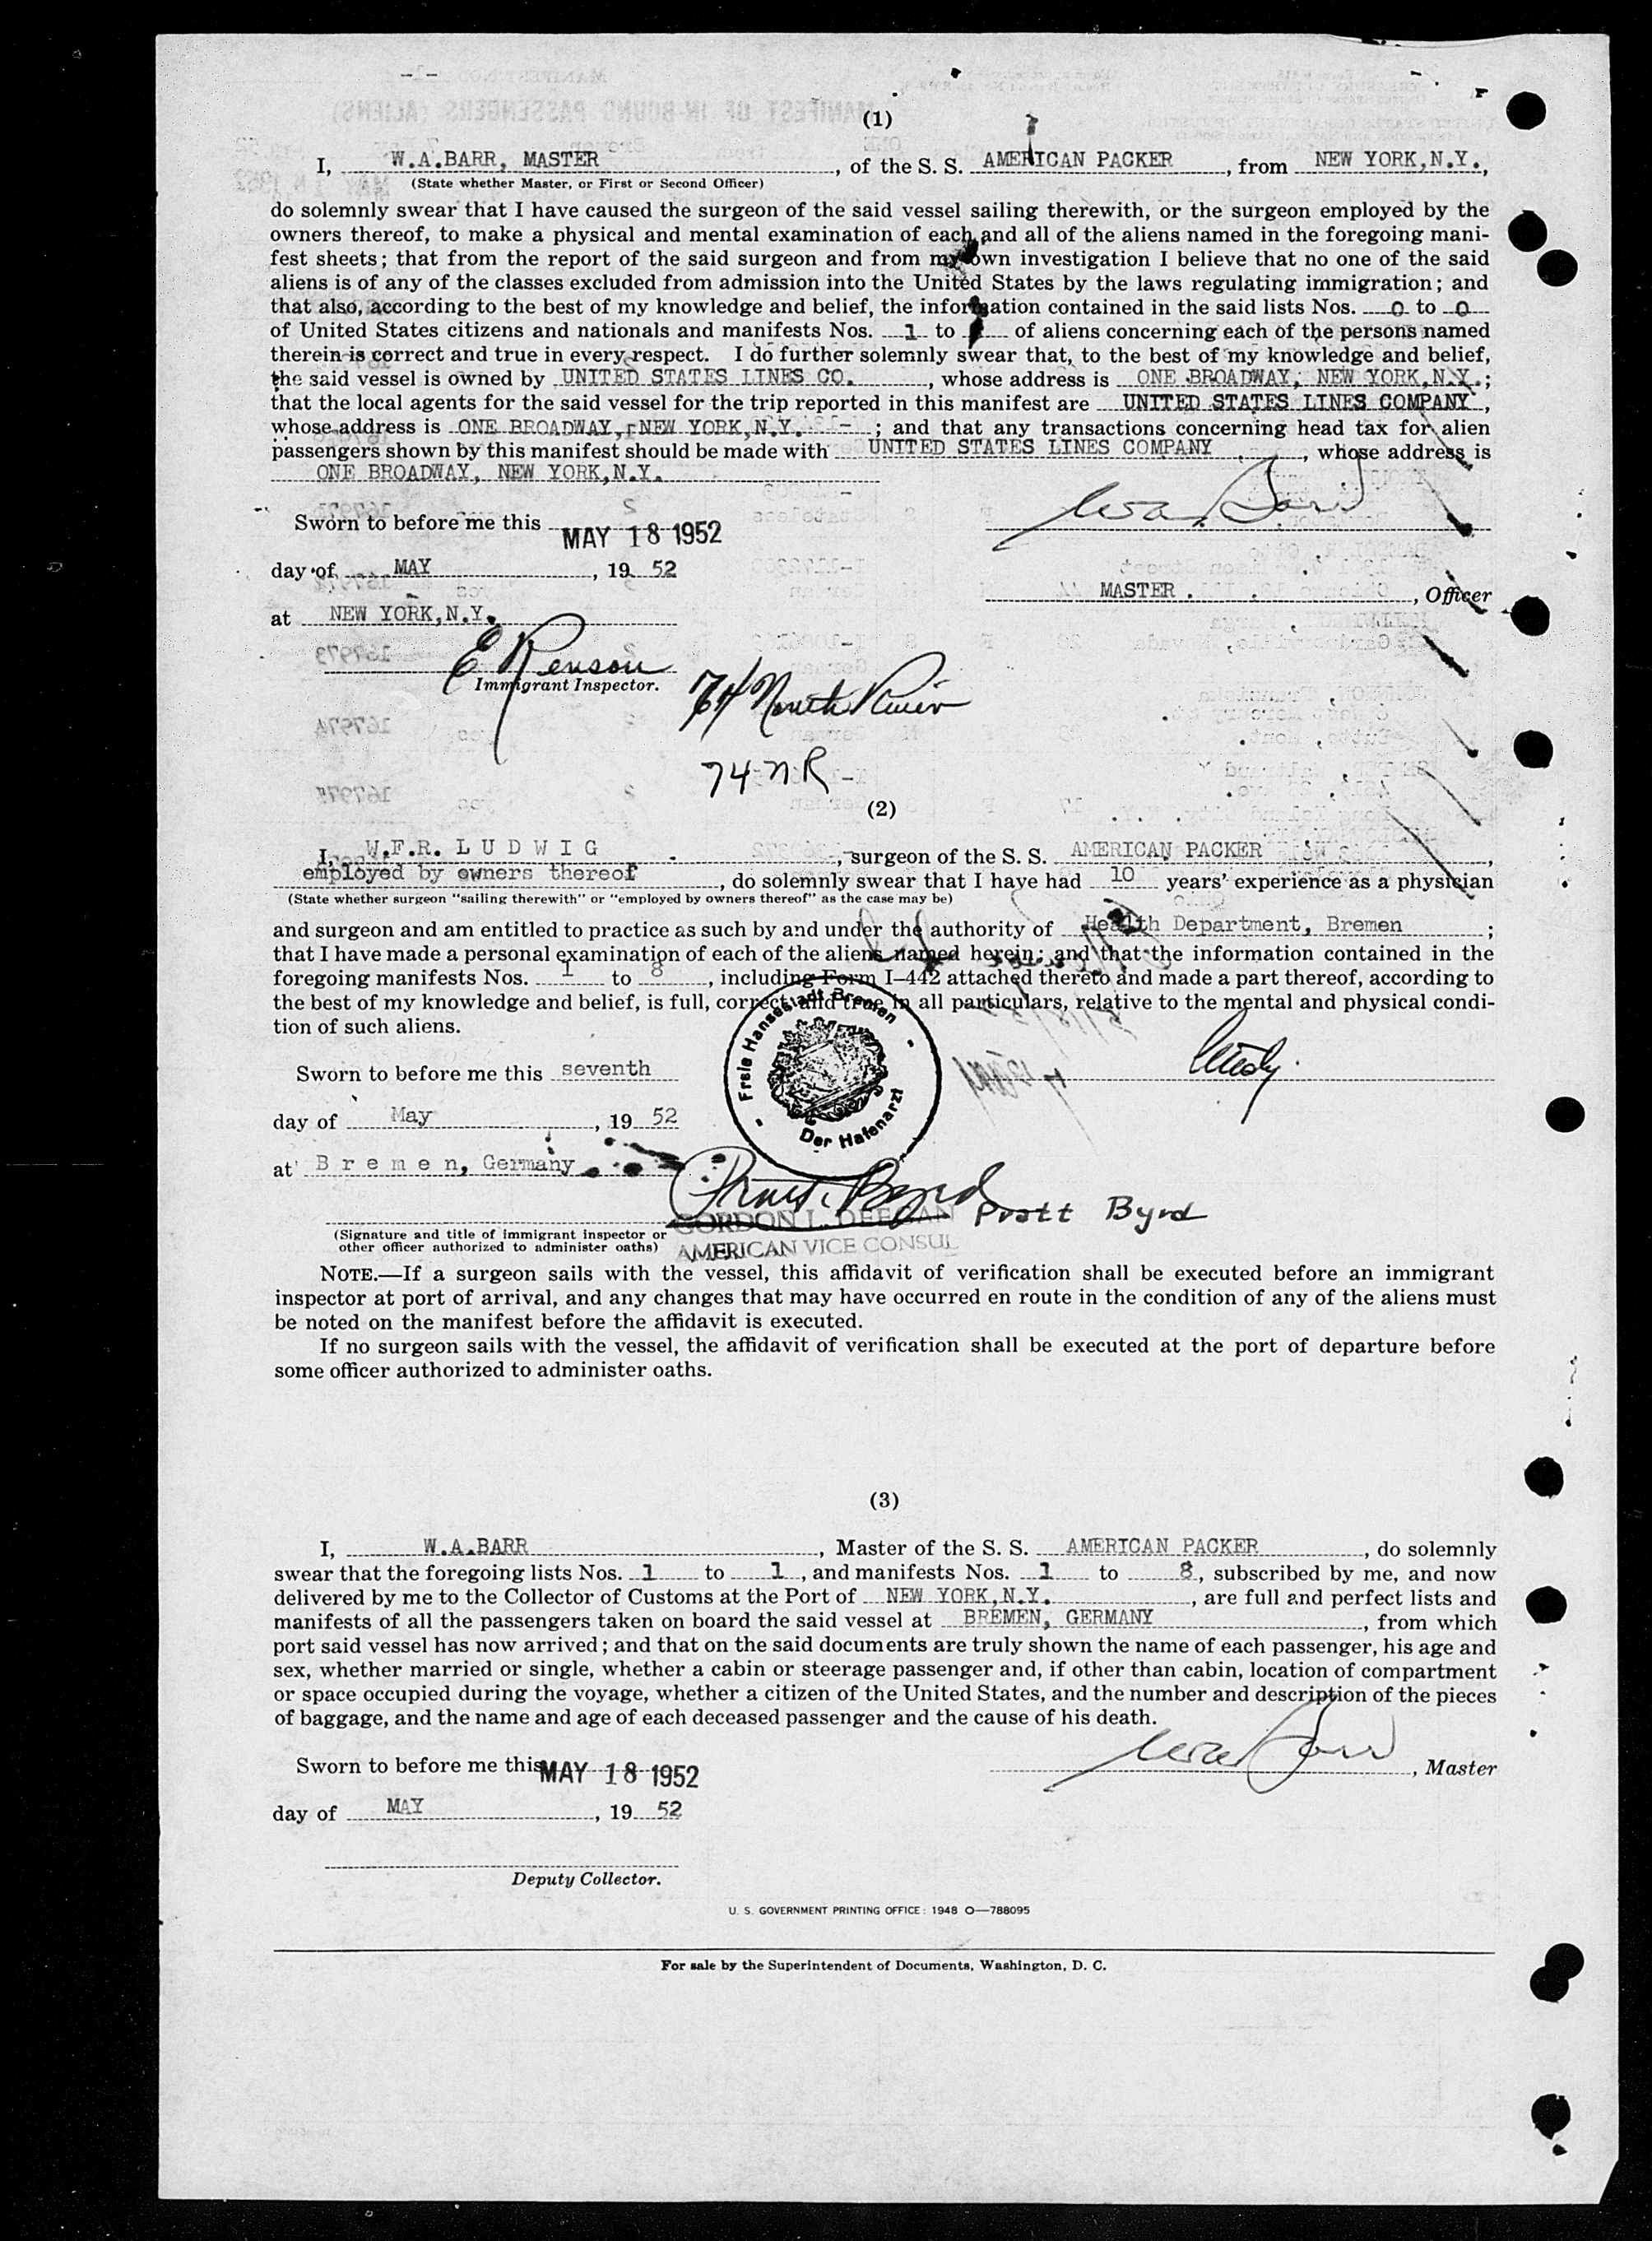 (1)
I, W.A.BARR, MASTER, of the S. S. AMERICAN PACKER, from NEW YORK,N.Y.,
(State whether Master, or First or Second Officer)
do solemnly swear that I have caused the surgeon of the said vessel sailing therewith, or the surgeon employed by the
owners thereof, to make a physical and mental examination of each and all of the aliens named in the foregoing mani-
fest sheets; that from the report of the said surgeon and from my own investigation I believe that no one of the said
aliens is of any of the classes excluded from admission into the United States by the laws regulating immigration; and
that also, according to the best of my knowledge and belief, the information contained in the said lists Nos. 0 to 0
of United States citizens and nationals and manifests Nos. 1 to of aliens concerning each of the persons named
therein is correct and true in every respect. I do further solemnly swear that, to the best of my knowledge and belief,
the said vessel is owned by UNITED STATES LINES CO., whose address is ONE BROADWAY, NEW YORK,N.Y.;
that the local agents for the said vessel for the trip reported in this manifest are UNITED STATES LINES COMPANY,
whose address is ONE BROADWAY, NEW YORK,N.Y.; and that any transactions concerning head tax for alien
passengers shown by this manifest should be made with UNITED STATES LINES COMPANY, whose address is
ONE BROADWAY, NEW YORK,N.Y.
Sworn to before me this MAY 18 1952
day of MAY, 19 52
MASTER, Officer
at NEW YORK,N.Y.
E Renson
Immigrant Inspector.
74 North River
74 N R
(2)
I, W.F.R. L U D W I G, surgeon of the S. S. AMERICAN PACKER,
employed by owners thereof, do solemnly swear that I have had 10 years' experience as a physician
(State whether surgeon "sailing therewith" or "employed by owners thereof" as the case may be)
and surgeon and am entitled to practice as such by and under the authority of Health Department, Bremen;
that I have made a personal examination of each of the aliens named herein; and that the information contained in the
foregoing manifests Nos. 1 to 8, including Form I-442 attached thereto and made a part thereof, according to
the best of my knowledge and belief, is full, correct, and true in all particulars, relative to the mental and physical condi-
tion of such aliens.
Freie Hansestadt Bremen
Der Hafenarzt
Sworn to before me this seventh
day of May, 19 52
at B r e m e n, Germany
Pratt Byrd
GORDON L. DEEGAN
AMERICAN VICE CONSUL
(Signature and title of immigrant inspector or
other officer authorized to administer oaths)
NOTE.—If a surgeon sails with the vessel, this affidavit of verification shall be executed before an immigrant
inspector at port of arrival, and any changes that may have occurred en route in the condition of any of the aliens must
be noted on the manifest before the affidavit is executed.
If no surgeon sails with the vessel, the affidavit of verification shall be executed at the port of departure before
some officer authorized to administer oaths.
(3)
I, W.A.BARR, Master of the S. S. AMERICAN PACKER, do solemnly
swear that the foregoing lists Nos. 1 to 1, and manifests Nos. 1 to 8, subscribed by me, and now
delivered by me to the Collector of Customs at the Port of NEW YORK,N.Y., are full and perfect lists and
manifests of all the passengers taken on board the said vessel at BREMEN, GERMANY, from which
port said vessel has now arrived; and that on the said documents are truly shown the name of each passenger, his age and
sex, whether married or single, whether a cabin or steerage passenger and, if other than cabin, location of compartment
or space occupied during the voyage, whether a citizen of the United States, and the number and description of the pieces
of baggage, and the name and age of each deceased passenger and the cause of his death.
Sworn to before me this MAY 18 1952
, Master
day of MAY, 19 52
Deputy Collector.
U. S. GOVERNMENT PRINTING OFFICE : 1948 O—788095
For sale by the Superintendent of Documents, Washington, D. C.